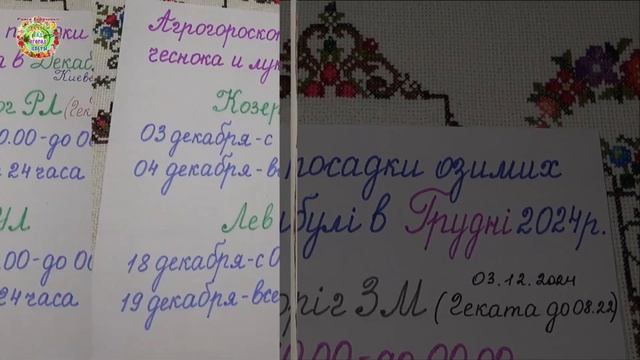 посадки
в Декаб
Киев
ог РЛ (Гек
0.00 - до 0
24 часа
УЛ
.00 - до 00
24 часа
Агрогороскоп
чеснока и лук
Козер
03 декабря - с
04 декабря - вс
Лев
18 декабря - с 0
19 декабря - все
посадки озимих
булі в Грудні 2024р.
03.12.2024
оріг ЗМ (Геката до 08.22)
0.00 - до 00.00